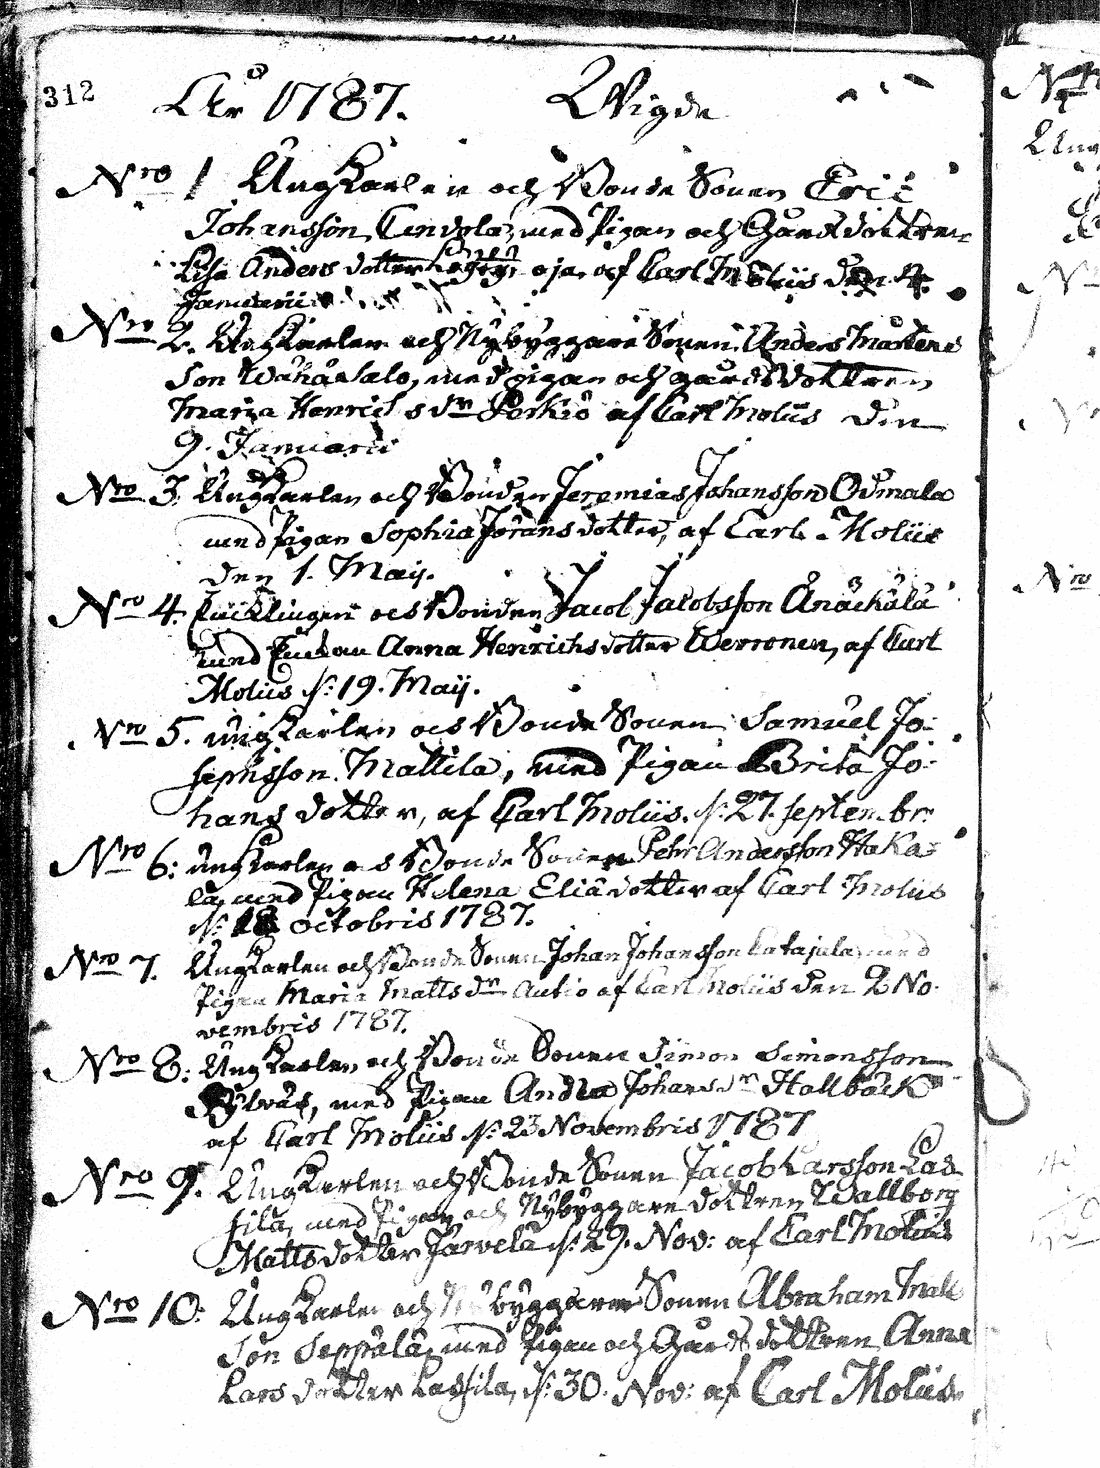 312
År 1787. Wigde
Nro 1 Ungkarlen och Bonde Sonen Eric
Johansson, med Pigan och Gårdsdottren
Lisa Andersdotter af Carl Moliis den 4.
Januarii
Nro 2. Ungkarlen och Nybyggare Sonen Anders Mårtens
son Wähäsalo, med pigan och gårdsdottren
Maria Henrics dn Perkiö af Carl Moliis den
9. Januarii
Nro 3. Ungkarlen och Bonden Jeremias Johansson Ojmala
med Pigan Sophia Jöransdotter, af Carl Moliis
den 1. Maij.
Nro 4. Enklingen och Bonden Jacob Jacobsson
med Enkan Anna Henrichsdotter Werronen, af Carl
Moliis d: 19. Maij.
Nro 5. ungkarlen och Bonde Sonen Samuel Jo-
sephsson Mattila, med Pigan Brita Jo-
hans dotter, af Carl Moliis. d: 27. septembr:
Nro 6: ungkarlen och Bonde Sonen Pehr Andersson Haka-
la, med Pigan Helena Eliä dotter af Carl Moliis
d: 18 octobris 1787.
Nro 7. Ungkarlen och Bonde Sonen Johan Johansson Catajala, med
Pigan Maria Matts dn Autio af Carl Moliis den 2 No-
vembris 1787.
Nro 8: Ungkarlen och Bonde Sonen Simon Simonsson
med Pigan Johans dn Hallbäck
af Carl Moliis d: 23 Novembris 1787
Nro 9. Ungkarlen och Bonde Sonen Jacob Larsson Las-
sila, med Pigan och Nybyggare dottren Wallborg
Mattsdotter Järvelä d: 29. Nov: af Carl Moliis
Nro 10: Ungkarlen och Nybyggaren Sonen Abraham Mats
son Seppälä, med Pigan och Gårdsdottren Anna
Larsdotter Lassila, d: 30. Nov: af Carl Moliis.